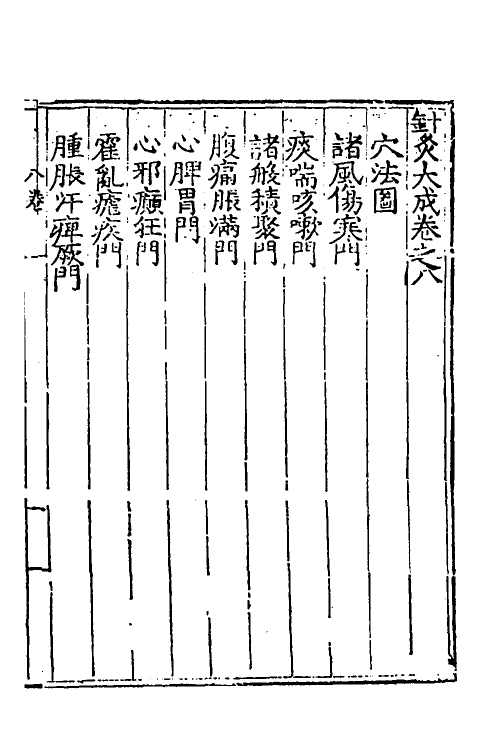 針灸大成卷之八
穴法圖
諸風傷寒門
痰喘咳嗽門
諸般積聚門
腹痛脹滿門
心脾胃門
心邪癲狂門
霍亂瘧疾門
腫脹汗痺厥門
八卷
一